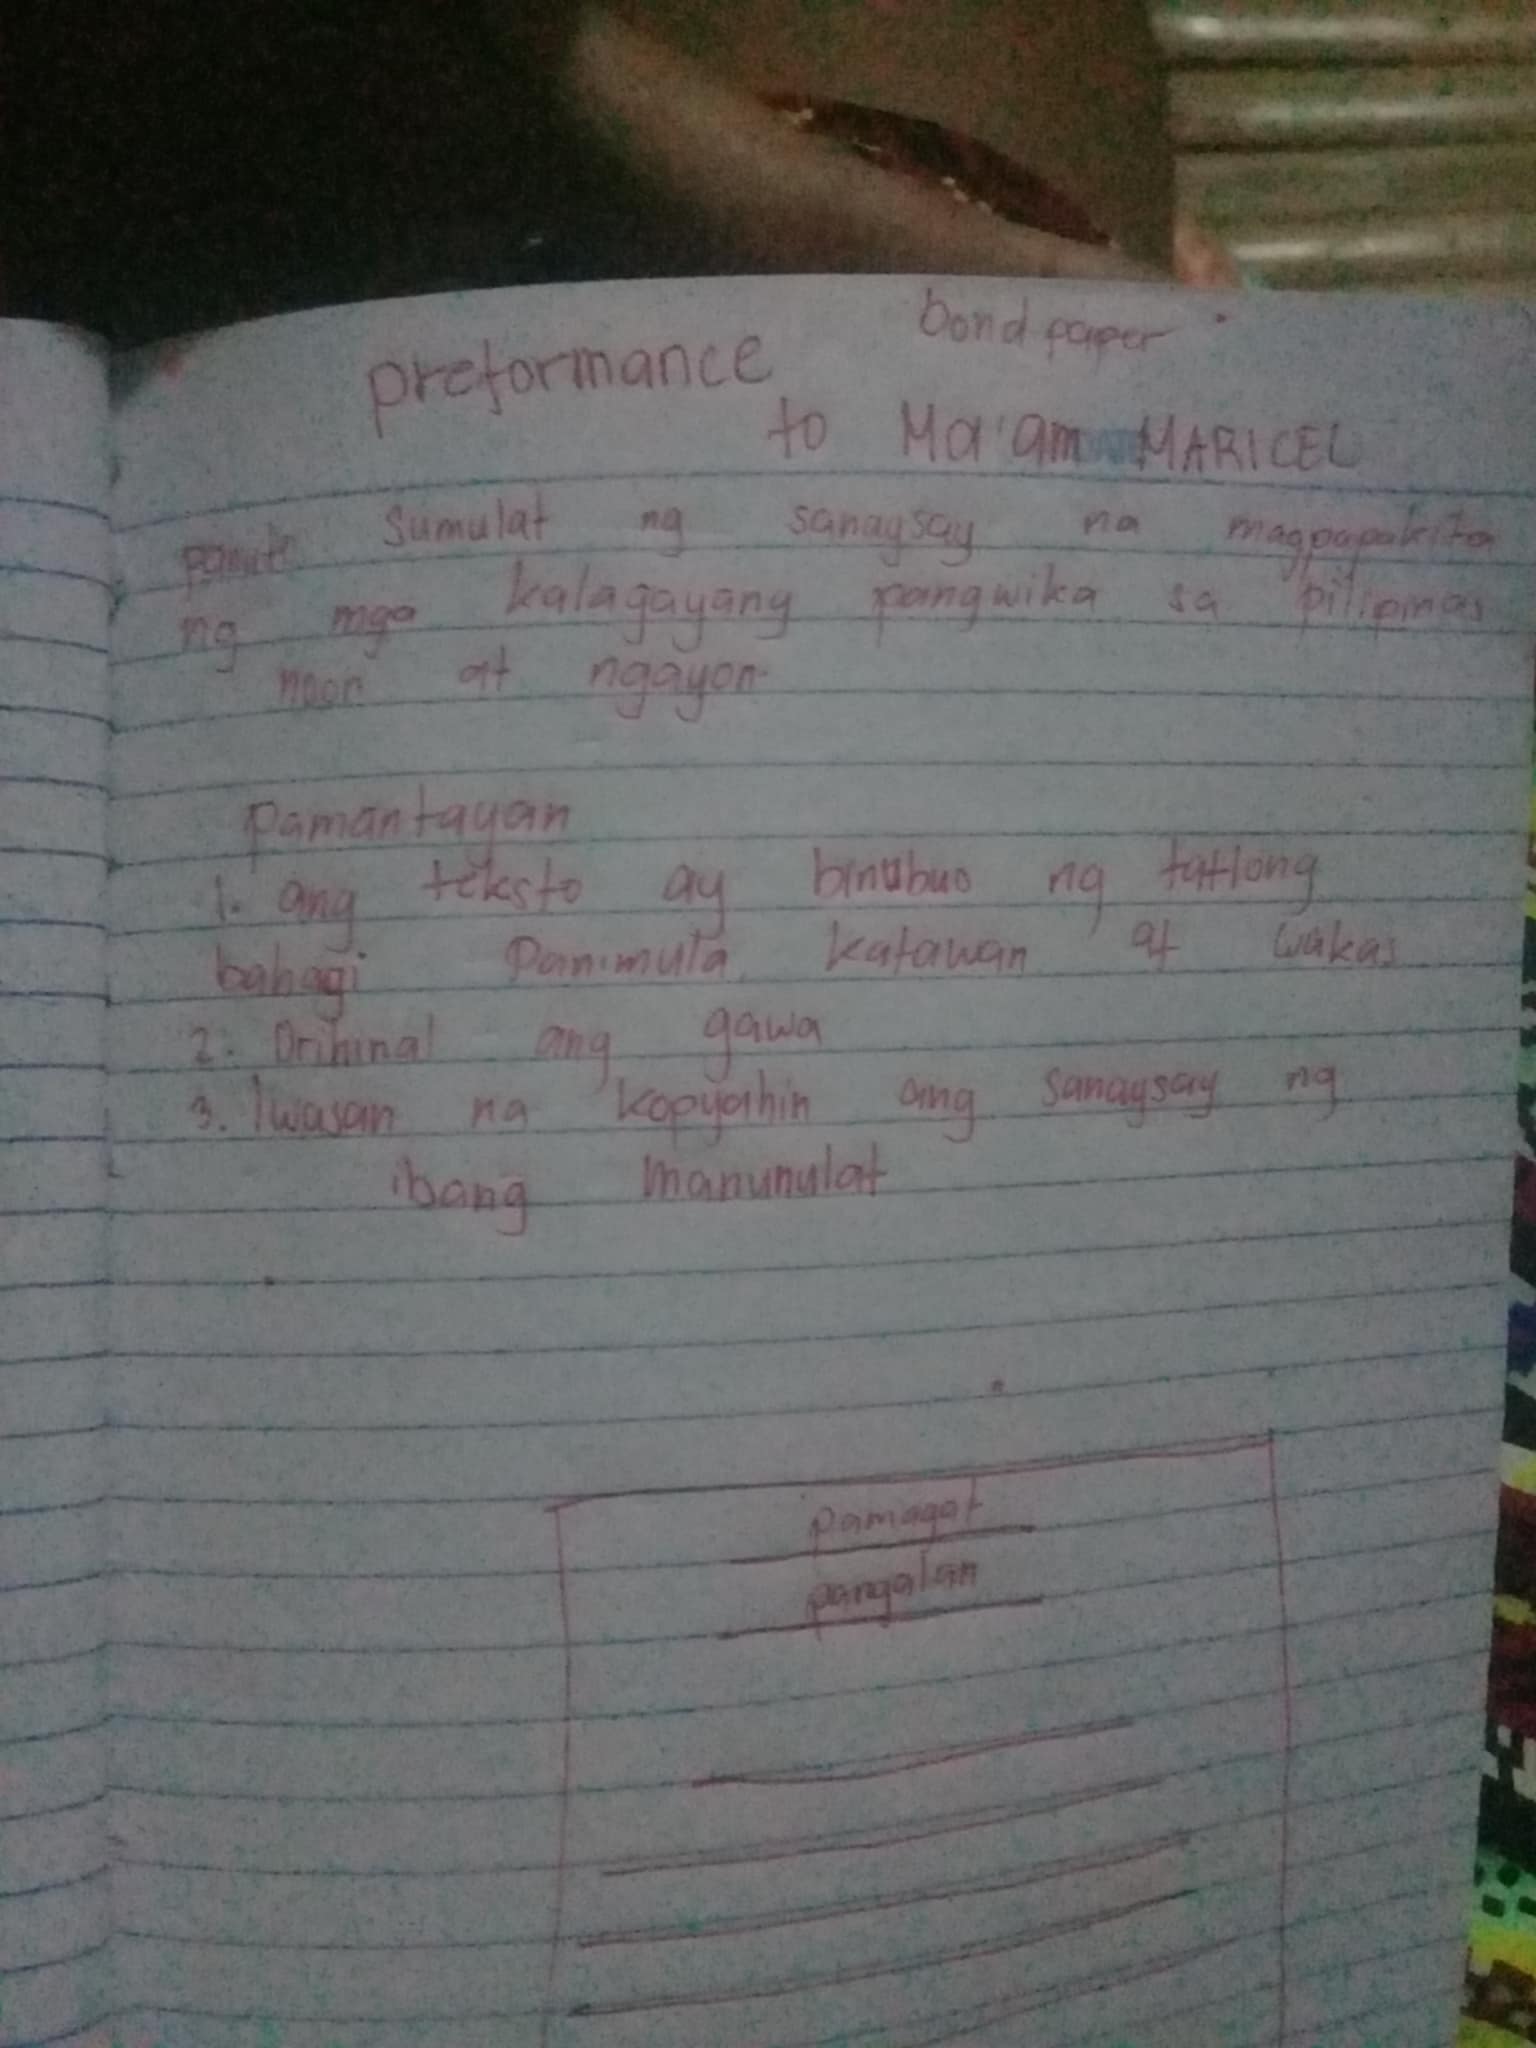 bond paper
preformance
to Ma'am MARICEL
Sumulat ng sanaysay na magpapakita
ng mga kalagayang pangwika sa pilipinas
noon at ngayon.
pamantayan
1. ang teksto ay binubuo ng tatlong
bahagi Panimula, katawan at wakas
2. Orihinal ang gawa
3. Iwasan na kopyahin ang sanaysay ng
ibang manunulat
pamagat
pangalan